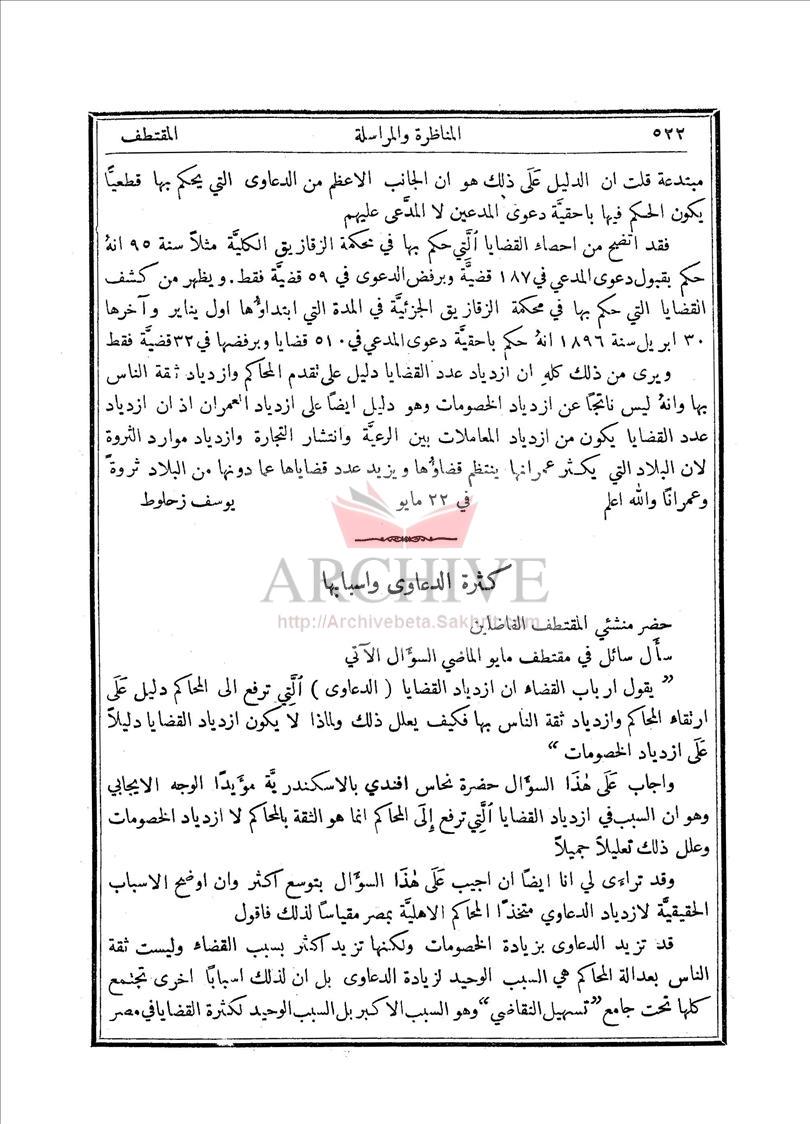 ٥٢٢ المناظرة والمراسلة المقتطف
مبتدعة قلت ان الدليل عَلَى ذلك هو ان الجانب الاعظم من الدعاوى التي يحكم بها قطعيًّا
يكون الحكم فيها باحقيَّة دعوى المدعين لا المدَّعى عليهم
فقد اتضح من احصاء القضايا اَلَّتِي حكم بها في محكمة الزقازيق الكليَّة مثلاً سنة ٩٥ انهُ
حكم بقبول دعوى المدعي في ١٨٧ قضيَّة وبرفض الدعوى في ٥٩ قضيَّة فقط. ويظهر من كشف
القضايا التي حكم بها في محكمة الزقازيق الجزئيَّة في المدة التي ابتداؤُها اول يناير وآخرها
٣٠ ابريل سنة ١٨٩٦ انهُ حكم باحقية دعوى المدعي في ٥١٠ قضايا وبرفضها في ٣٢ قضيَّة فقط
ويرى من ذلك كلهِ ان ازدياد عدد القضايا دليل على تقدم المحاكم وازدياد ثقة الناس
بها وانهُ ليس ناتجًا عن ازدياد الخصومات وهو دليل ايضاً على ازدياد العمران اذ ان ازدياد
عدد القضايا يكون من ازدياد المعاملات بين الرعيَّة وانتشار التجارة وازدياد موارد الثروة
لان البلاد التي يكثر عمرانها ينتظم قضاؤُها ويزيد عدد قضاياها عما دونها من البلاد ثروةً
وعمرانًا والله اعلم في ٢٢ مايو يوسف زحلوط
ARCHIVE
كثرة الدعاوى واسبابها
http://Archivebeta.Sakhrit.com
حضر منشئي المقتطف الفاضلين
سأَل سائل في مقتطف مايو الماضي السؤَال الآتي
” يقول ارباب القضاء ان ازدياد القضايا ( الدعاوى ) اَلَّتِي ترفع الى المحاكم دليل عَلَى
ارتقاء المحاكم وازدياد ثقة الناس بها فكيف يعلل ذلك ولماذا لا يكون ازدياد القضايا دليلاً
عَلَى ازدياد الخصومات “
واجاب عَلَى هٰذَا السؤَال حضرة نحاس افندي بالاسكندريَّة مؤَيدًا الوجه الايجابي
وهو ان السبب في ازدياد القضايا اَلَّتِي ترفع إِلَى المحاكم انما هو الثقة بالمحاكم لا ازدياد الخصومات
وعلل ذلك تعليلاً جميلاً
وقد تراءَى لي انا ايضاً ان اجيب عَلَى هٰذَا السؤَال بتوسع اكثر وان اوضح الاسباب
الحقيقيَّة لازدياد الدعاوي متخذًا المحاكم الاهليَّة بمصر مقياسًا لذلك فاقول
قد تزيد الدعاوى بزيادة الخصومات ولكنها تزيد اكثر بسبب القضاء وليست ثقة
الناس بعدالة المحاكم هي السبب الوحيد لزيادة الدعاوى بل ان لذلك اسبابًا اخرى تجتمع
كلها تحت جامع ”تسهيل التقاضي“ وهو السبب الاكبر بل السبب الوحيد لكثرة القضايا في مصر